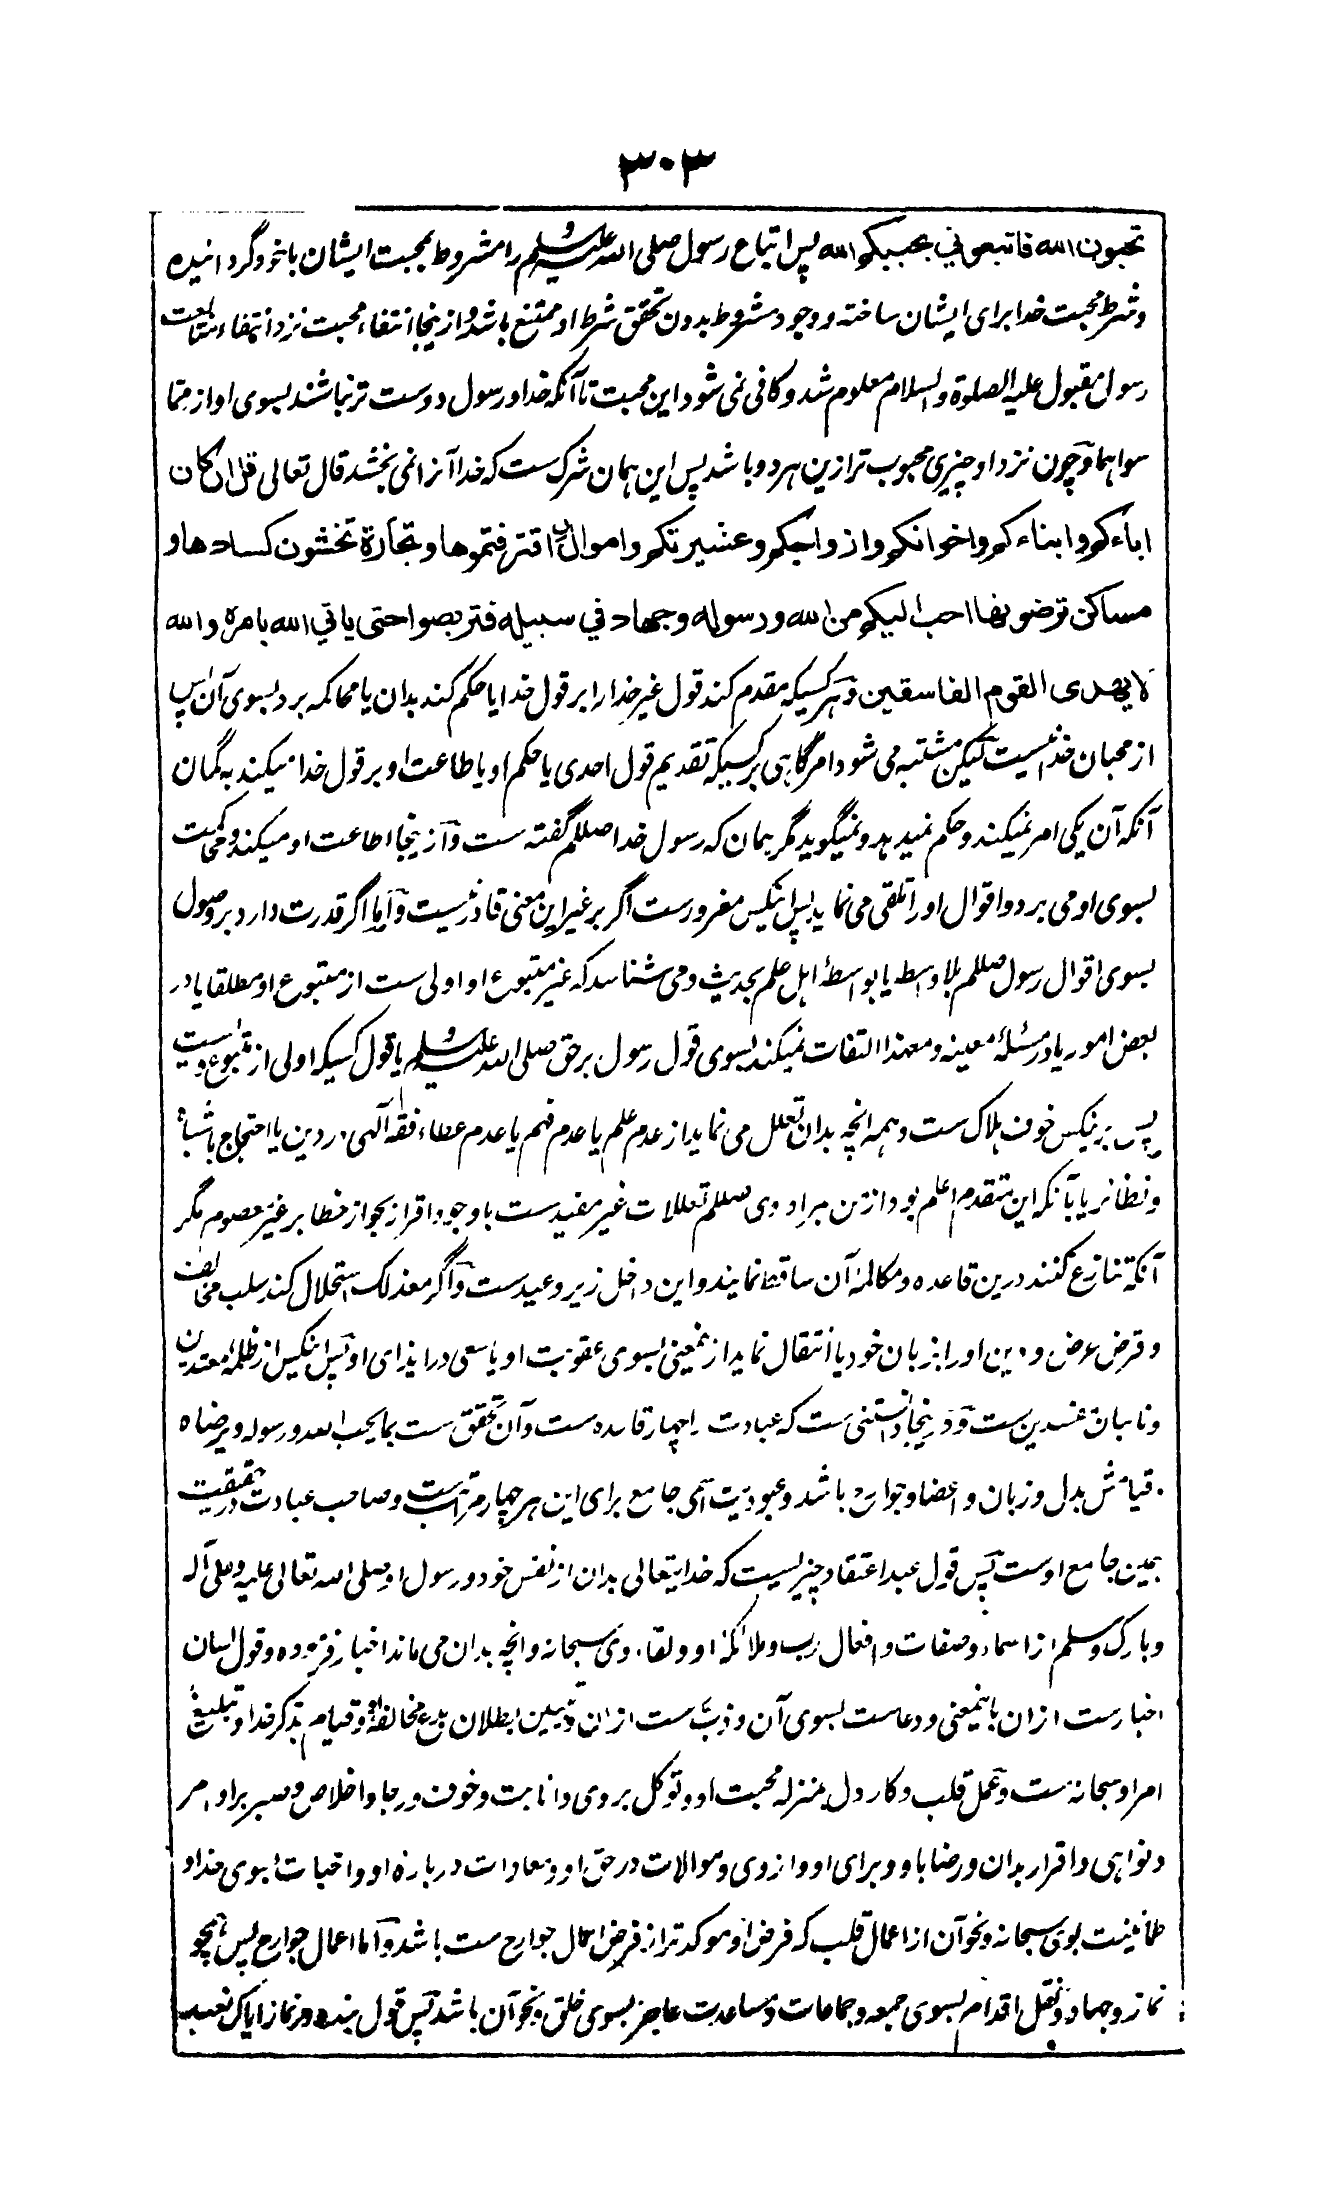 ۳۰۳
تحبون الله فاتبعوني يحببكم الله پس اتباع رسول صلی الله علیه وسلم را مشروط بمحبت ایشان باخود گردانیده
و شرط محبت خدا برای ایشان ساخته و وجود مشروط بدون تحقق شرط او ممتنع باشد و از ینجا انتفاء محبت نزد انتفاء متابعت
رسول مقبول علیه الصلوة والسلام معلوم شد و کافی نمی شود این محبت تا آنکه خدا و رسول دوست تر نباشند بسوی او از مما
سواهما و چون نزد او چیزی محبوب تر ازین هر دو باشد پس این همان شرک ست که خدا آنرا نمی بخشد قال تعالی قل ان کان
اباءكم وابناءكم واخوانكم وازواجكم وعشيرتكم واموال اقترفتموها وتجارة تخشون كسادها و
مساكن ترضونها احب اليكم من الله ورسوله وجهاد في سبيله فتربصوا حتى ياتي الله بامره والله
لا يهدى القوم الفاسقين و هر کسیکه مقدم کند قول غیر خدا را بر قول خدا یا حکم کند بدان یا محاکمه برد بسوی آن پس
از محبان خدا نیست لیکن مشتبه می شود امر گاهی بر کسیکه تقدیم قول احدی یا حکم او یا طاعت او بر قول خدا میکند به گمان
آنکه آن یکی امر نمیکند و حکم نمیدهد و نمیگوید مگر همان که رسول خدا صللم گفته ست و از ینجا اطاعت او میکند و محاکمت
بسوی او می برد و اقوال او را تلقی می نماید پس اینکس مغرورست اگر بر غیر این معنی قادر نیست و اما اگر قدرت دارد بر وصول
بسوی اقوال رسول صللم بلا واسطه یا بواسطهٔ اهل علم بحدیث و می شناسد که غیر متبوع او اولی ست از متبوع او مطلقا یا در
بعض امور یا در مسئلهٔ معینه و معهذا التفات نمیکند بسوی قول رسول برحق صلی الله علیه وسلم یا قول کسیکه اولی از متبوع اوست
پس برینکس خوف هلاک ست و همه انچه بدان تعلل می نماید از عدم علم یا عدم فهم یا عدم عطاء فقه آلهی در دین یا احتجاج باشباه
و نظائر یا بآنکه این متقدم اعلم بود از من بمراد وی صللم تعللات غیر مفیدست با وجود اقرار بجواز خطا بر غیر معصوم مگر
آنکه تنازع کنند درین قاعده و مکالمهٔ آن ساقط نمایند و این داخل زیر وعید ست و اگر معذلک استحلال کند سلب مخالف
و قرض عرض و دین او را بزبان خود یا انتقال نماید ازینمعنی بسوی عقوبت او یا سعی در ایذای او پس اینکس از ظلمهٔ معتدین
و نائبان مفسدین ست و در ینجا دانستنی ست که عبادت را چهار قاعده ست و آن تحقق ست بما یحب الله ورسوله ویرضاه
قیامش بدل و زبان و اعضا و جوارح باشد و عبودیت اسمی جامع برای این هر چهار مراتب ست و صاحب عبادت در حقیقت
همین جامع اوست پس قول عبد اعتقاد چیزیست که خدایتعالی بدان از نفس خود و رسول او صلی الله تعالی علیه وعلی آله
وبارک وسلم از اسماء و صفات و افعال رب و ملائکهٔ او و لقاء وی سبحانه و انچه بدان می ماند اخبار فرموده و قول لسان
اخبارست ازان باینمعنی و دعاست بسوی آن و ذب ست ازان و تبیین بطلان بدع مخالفهٔ او و قیام بذکر خدا و تبلیغ
امر او سبحانه ست و عمل قلب و کار دل بمنزله محبت او و توکل بر وی و انابت و خوف و رجا و اخلاص و صبر بر اوامر
و نواهی و اقرار بدان و رضا باو و برای او و از وی و موالات در حق او و معادات در باره او و اخبات بسوی خدا و
طمانینت بوی سبحانه و نحو آن از اعمال قلب که فرض او موکدتر از فرض اعمال جوارح ست باشد و اما اعمال جوارح پس همچو
نماز و جهاد و نقل اقدام بسوی جمعه و جماعات و مساعدت عاجز بسوی خلق و نحو آن باشد پس قول بنده در نماز ایاک نعبد